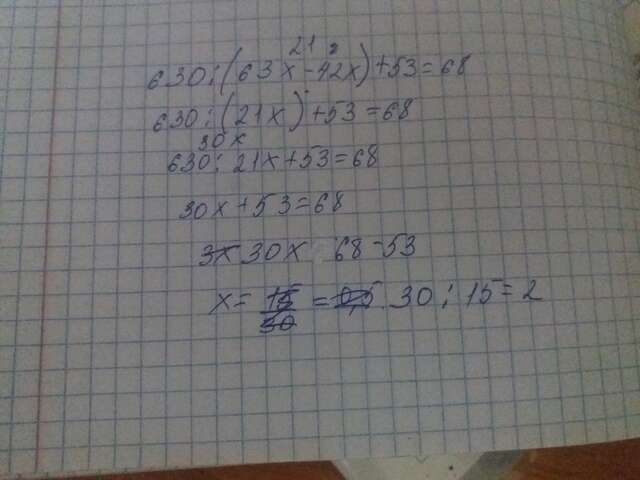 21 2
630:(63x-42x)+53=68
630:(21x)+53=68
30 x
630:21x+53=68
30x+53=68
30x 68-53
x= 15/30 = 30:15=2